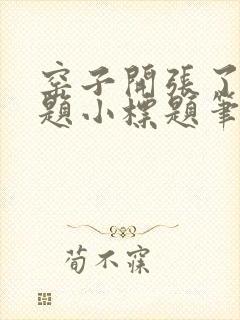 窑子開張了
題小標題筆
荀不寐